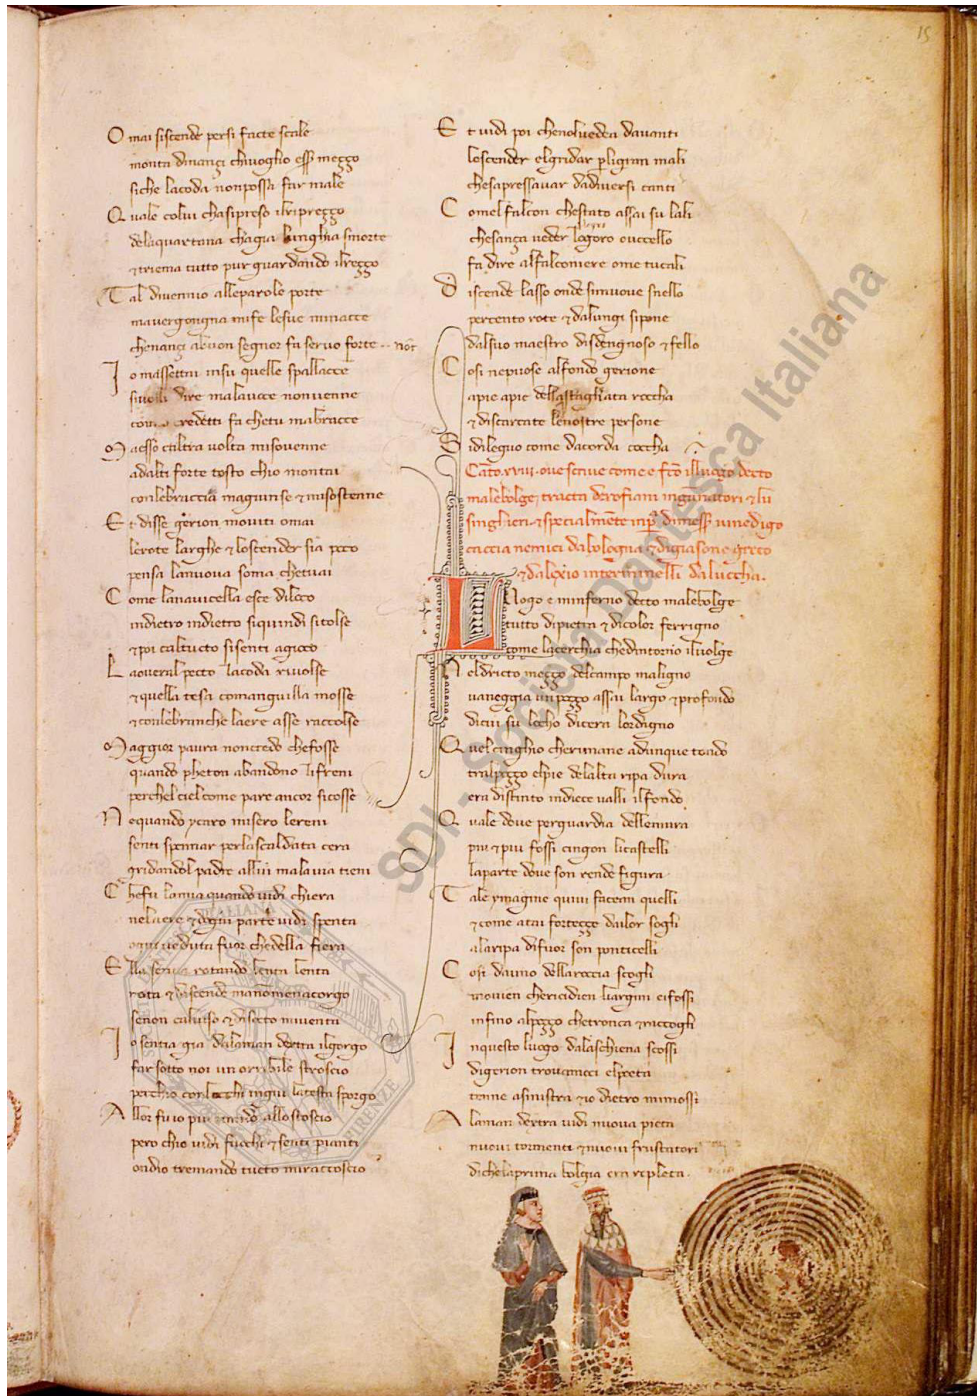 15
O mai siscende persi facte scale
monta dinançi chiuoglio essẽ meggo
siche lacoda nonpossa far male
Q uale colui chasipreso ilriprezzo
delaquartana chagia lunghia smorte
⁊ triema tutto pur guardando ilrezzo
T al diuennio alleparole porte
mauergongna mife lesue minacce
chenançi abuon segnor fa seruo forte
I o massettai insu quelle spallacce
dire malauoce nonuenne
credetti fa chetu mabracce
M aesso caltra uolta misouenne
adalti forte tosto chio montai
conlebraccia magiunse ⁊ misostenne
E t disse gerion mouiti omai
lerote larghe ⁊ loscender sia poco
pensa lanuoua soma chetuai
C ome lanauicella esce diloco
indietro indietro siquindi sitolse
⁊ poi caltucto sisenti agioco
L aoueral pecto lacoda riuolse
⁊ quella tesa comanguilla mosse
⁊ conlebranche laere asse raccolse
M aggior paura noncredo chefosse
quando pheton abandono lifreni
perchelcielcome pare ancor sicosse
N equando ycaro misero lereni
senti spennar perlascaldata cera
gridandol padre allui malauia tieni
C hefu lamia quando uidi chiera
nelaere ⁊ dogni parte uidi spenta
ogni ueduta fuor chedella fiera
E lla senua rotando lenta lenta
rota ⁊ discende manõmenacorgo
senon caluiso ⁊ disocto miuenta
I o sentia gia dalaman dextra ilgorgo
far sotto noi un orribile stroscio
perchio congliocchi ingiu latesta sporgo
A llor fuio piu allostoscio
pero chio uidi fuochi ⁊ senti pianti
ondio tremando tucto miraccoscio
E t uidi poi chenoluedea dauanti
loscender elgirar perligran mali
chesapressauar dadiuersi canti
C omel falcon chestato assai su lali
chesança ueder logoro ouccello
fa dire alfalconiere ome tucali
D iscende lasso onde simuoue snello
percento rote ⁊ dalungi sipone
dalsuo maestro disdengnoso ⁊ fello
C osi nepuose alfondo gerione
apie apie dellastagliata roccha
⁊ discarcate lenostre persone
S idileguo come dacorda coccha
Cãto .xviii. oue scriue come e fc̃o illuogo decto
malebolge, tracta deroffiani ingannatori ⁊ lu
singhieri ⁊ specialmẽte inp̃ dimess̃ uinedigo
caccia nemici dabologna ⁊ digiasone greco
⁊ dalexio interminelli daluccha.
L uogo e ninferno decto malebolge
tutto dipietra ⁊ dicolor ferrigno
come lacerchia chedintorno iluolge
N eldricto meçço delcampo maligno
uaneggia unpoççо assai largo ⁊ profondo
dicui su locho dicera lordigno
Q uelcinghio cherimane adunque tondo
tralpoççо elpie delalta ripa dura
era distinto indiece ualli ilfondo
Q uale doue perguardia dellemura
piu ⁊ piu fossi cingon licastelli
laparte doue son rende figura
T ale ymagine quiui facean quelli
⁊ come atai forteççe dailor sogli
alaripa difuor son ponticelli
C osi daimo dellaroccia scogli
mouien chericidien liargini eifossi
infino alpoççо chetronca ⁊ raccogli
I nquesto luogo dalaschiena scossi
digerion trouamoci elpoeta
tenne asinistra ⁊ io dietro mimossi
A laman dextra uidi nuoua pieta
nuoui tormenti ⁊ nuoui frustatori
dichelaprima bolgia era repleta.
SDI - Società Dantesca Italiana